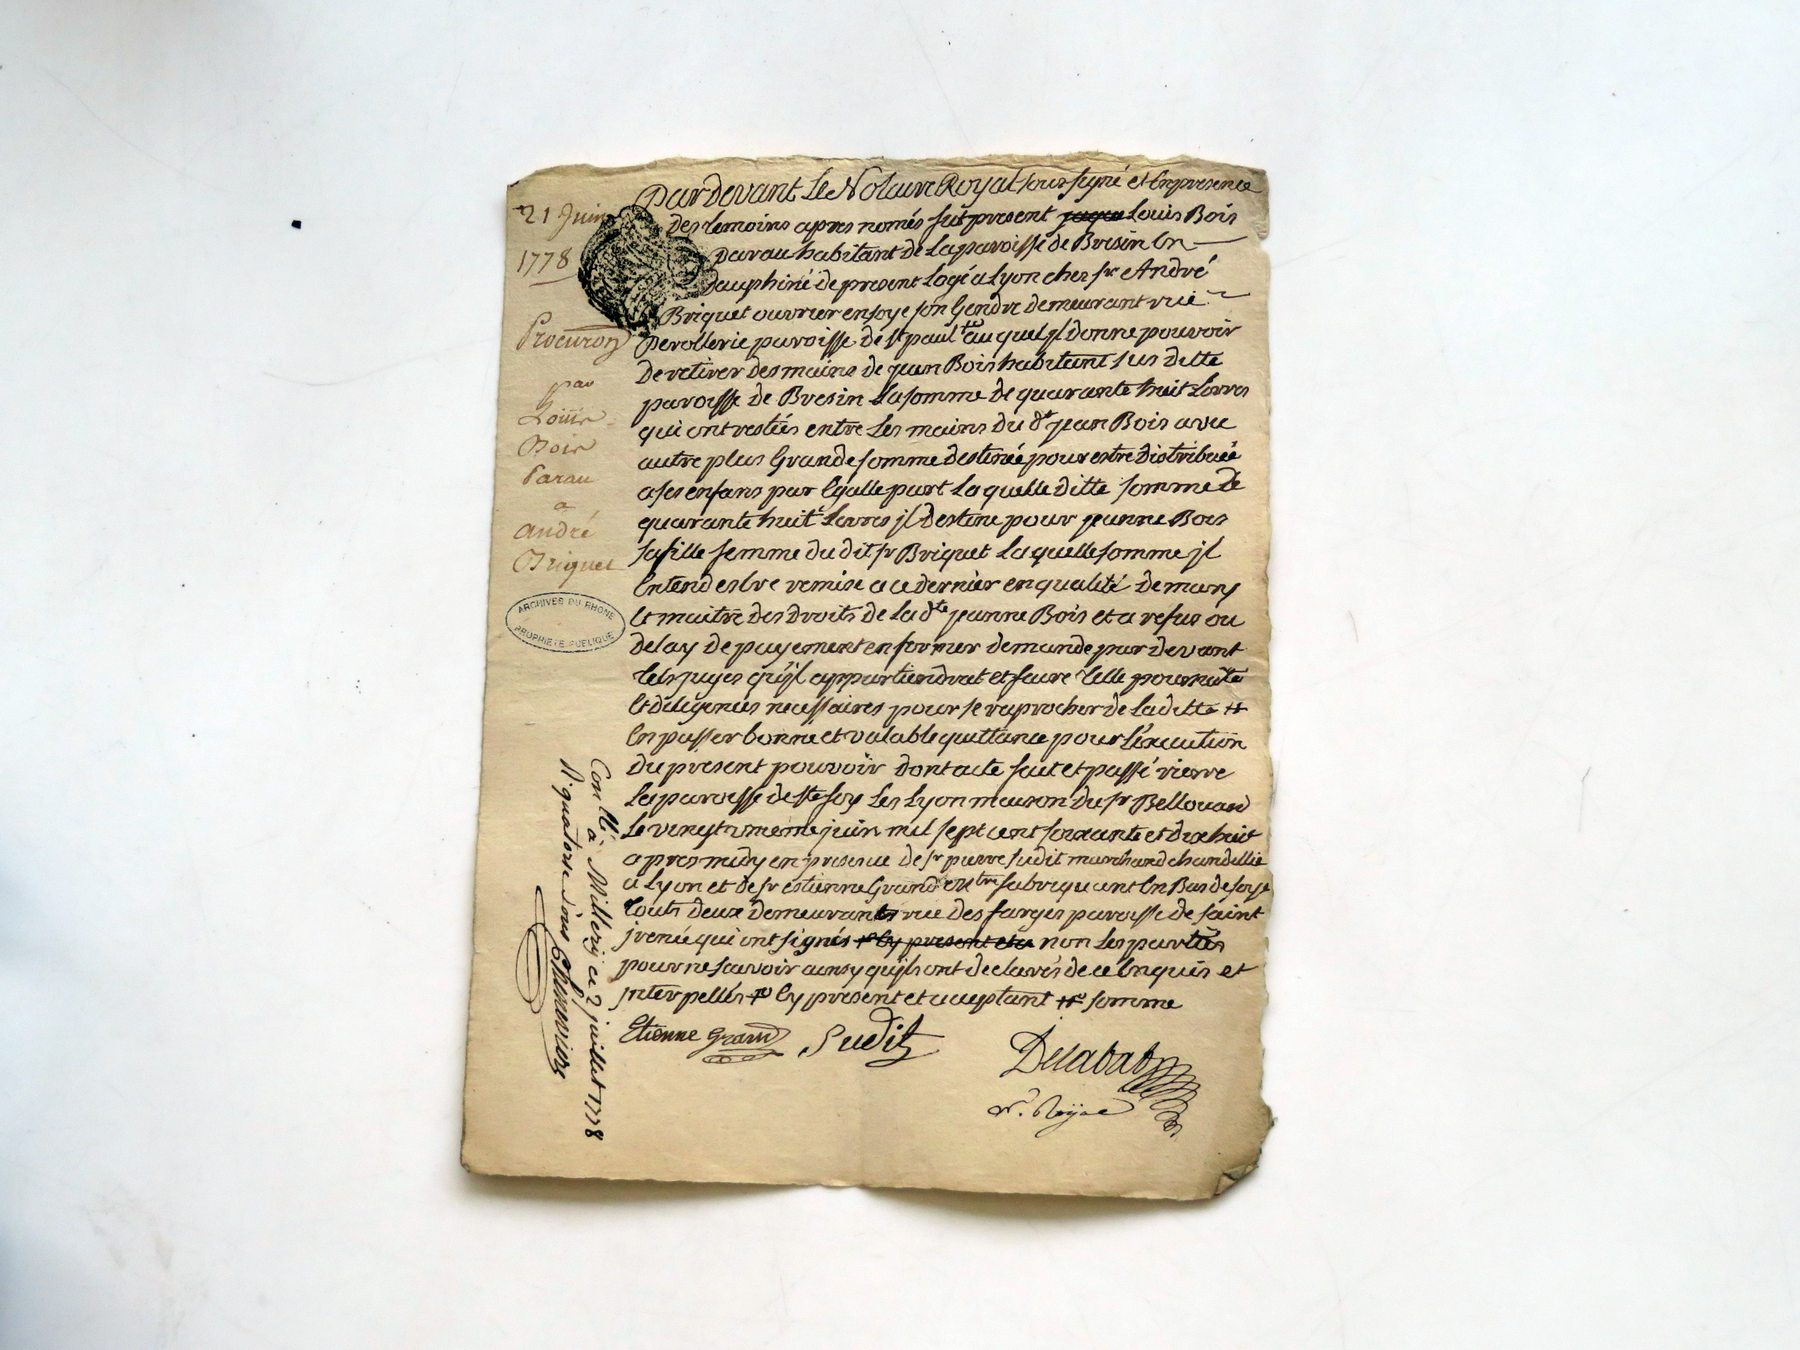 21 Juin
1778
Procuron
par
Louis
Bois
Parau
a
andré
Briquet
ARCHIVES DU RHONE
PROPRIETE PUBLIQUE
Par Devant Le Notaire Royal soussigné et En presence
Des temoins apres només fut present Louis Bois
Parau habitant de La paroisse de Bresin En
Dauphiné de present Logé a Lyon chez sr André
Briquet ouvrier en soye son Gendre demeurant rüe
Perollerie paroisse de st paul auquel jl donne pouvoir
De retirer des mains de jean Bois habitant sus ditte
paroisse de Bresin La somme de quarante huit Livres
qui ont restées entre Les mains du dt jean Bois avec
autre plus Grande somme destinée pour estre distribuée
a ses enfans par Egalle part La quelle ditte somme de
quarante huit Livres jl Destine pour jeanne Bois
sa fille femme du dit sr Briquet La quelle somme jl
Entend estre remise a ce dernier en qualité de mary
Et maitre des Droits de La dte jeanne Bois et a refus ou
delay de payement en former demande par devant
tels juges qu'jl appartiendrat et faire telle poursuite
Et diligences necessaires pour se raprocher de La ditte
En passer bonne et valable quittance pour L'execution
Du présent pouvoir dont acte fait et passé rierre
La paroisse de ste foy Les Lyon maison du sr Bellouard
Le vingt unieme juin mil sept cent soixante et dix huit
apres midy en presence de sr pierre Sudit marchand chandellier
a Lyon et de sr estienne Grand mtre fabriquant En Bas de soye
touts deux demeurants rue des farges paroisse de saint
jrenée qui ont signés Ly present et a non Les parties
pour ne scavoir ainsy qu'jls ont declarés de ce Enquis et
jnterpellés Ly present et acceptant somme
Etienne Grand Sudit
Delabat
nre Royal
Con llé à Millery ce 2 juillet 1778
R quatorze sous